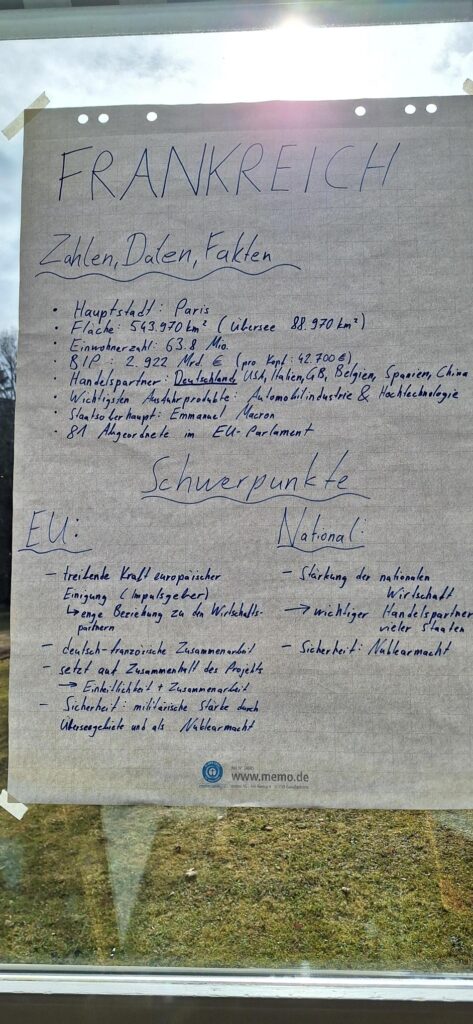 FRANKREICH
Zahlen, Daten, Fakten
• Hauptstadt: Paris
• Fläche: 543.970 km² (Übersee 88.970 km²)
• Einwohnerzahl: 63.8 Mio.
• BIP: 2.922 Mrd. € (pro Kopf: 42.700 €)
• Handelspartner: Deutschland, USA, Italien, GB, Belgien, Spanien, China
• Wichtigsten Ausfuhrprodukte: Automobilindustrie & Hochtechnologie
• Staatsoberhaupt: Emmanuel Macron
• 81 Abgeordnete im EU-Parlament
Schwerpunkte
EU:
- treibende Kraft europäischer
Einigung (Impulsgeber)
↳ enge Beziehung zu den Wirtschafts-
partnern
- deutsch-französische Zusammenarbeit
- setzt auf Zusammenhalt des Projekts
→ Einheitlichkeit + Zusammenarbeit
- Sicherheit: militärische Stärke durch
Überseegebiete und als Nuklearmacht
National:
- Stärkung der nationalen
Wirtschaft
→ wichtiger Handelspartner
vieler Staaten
- Sicherheit: Nuklearmacht
www.memo.de